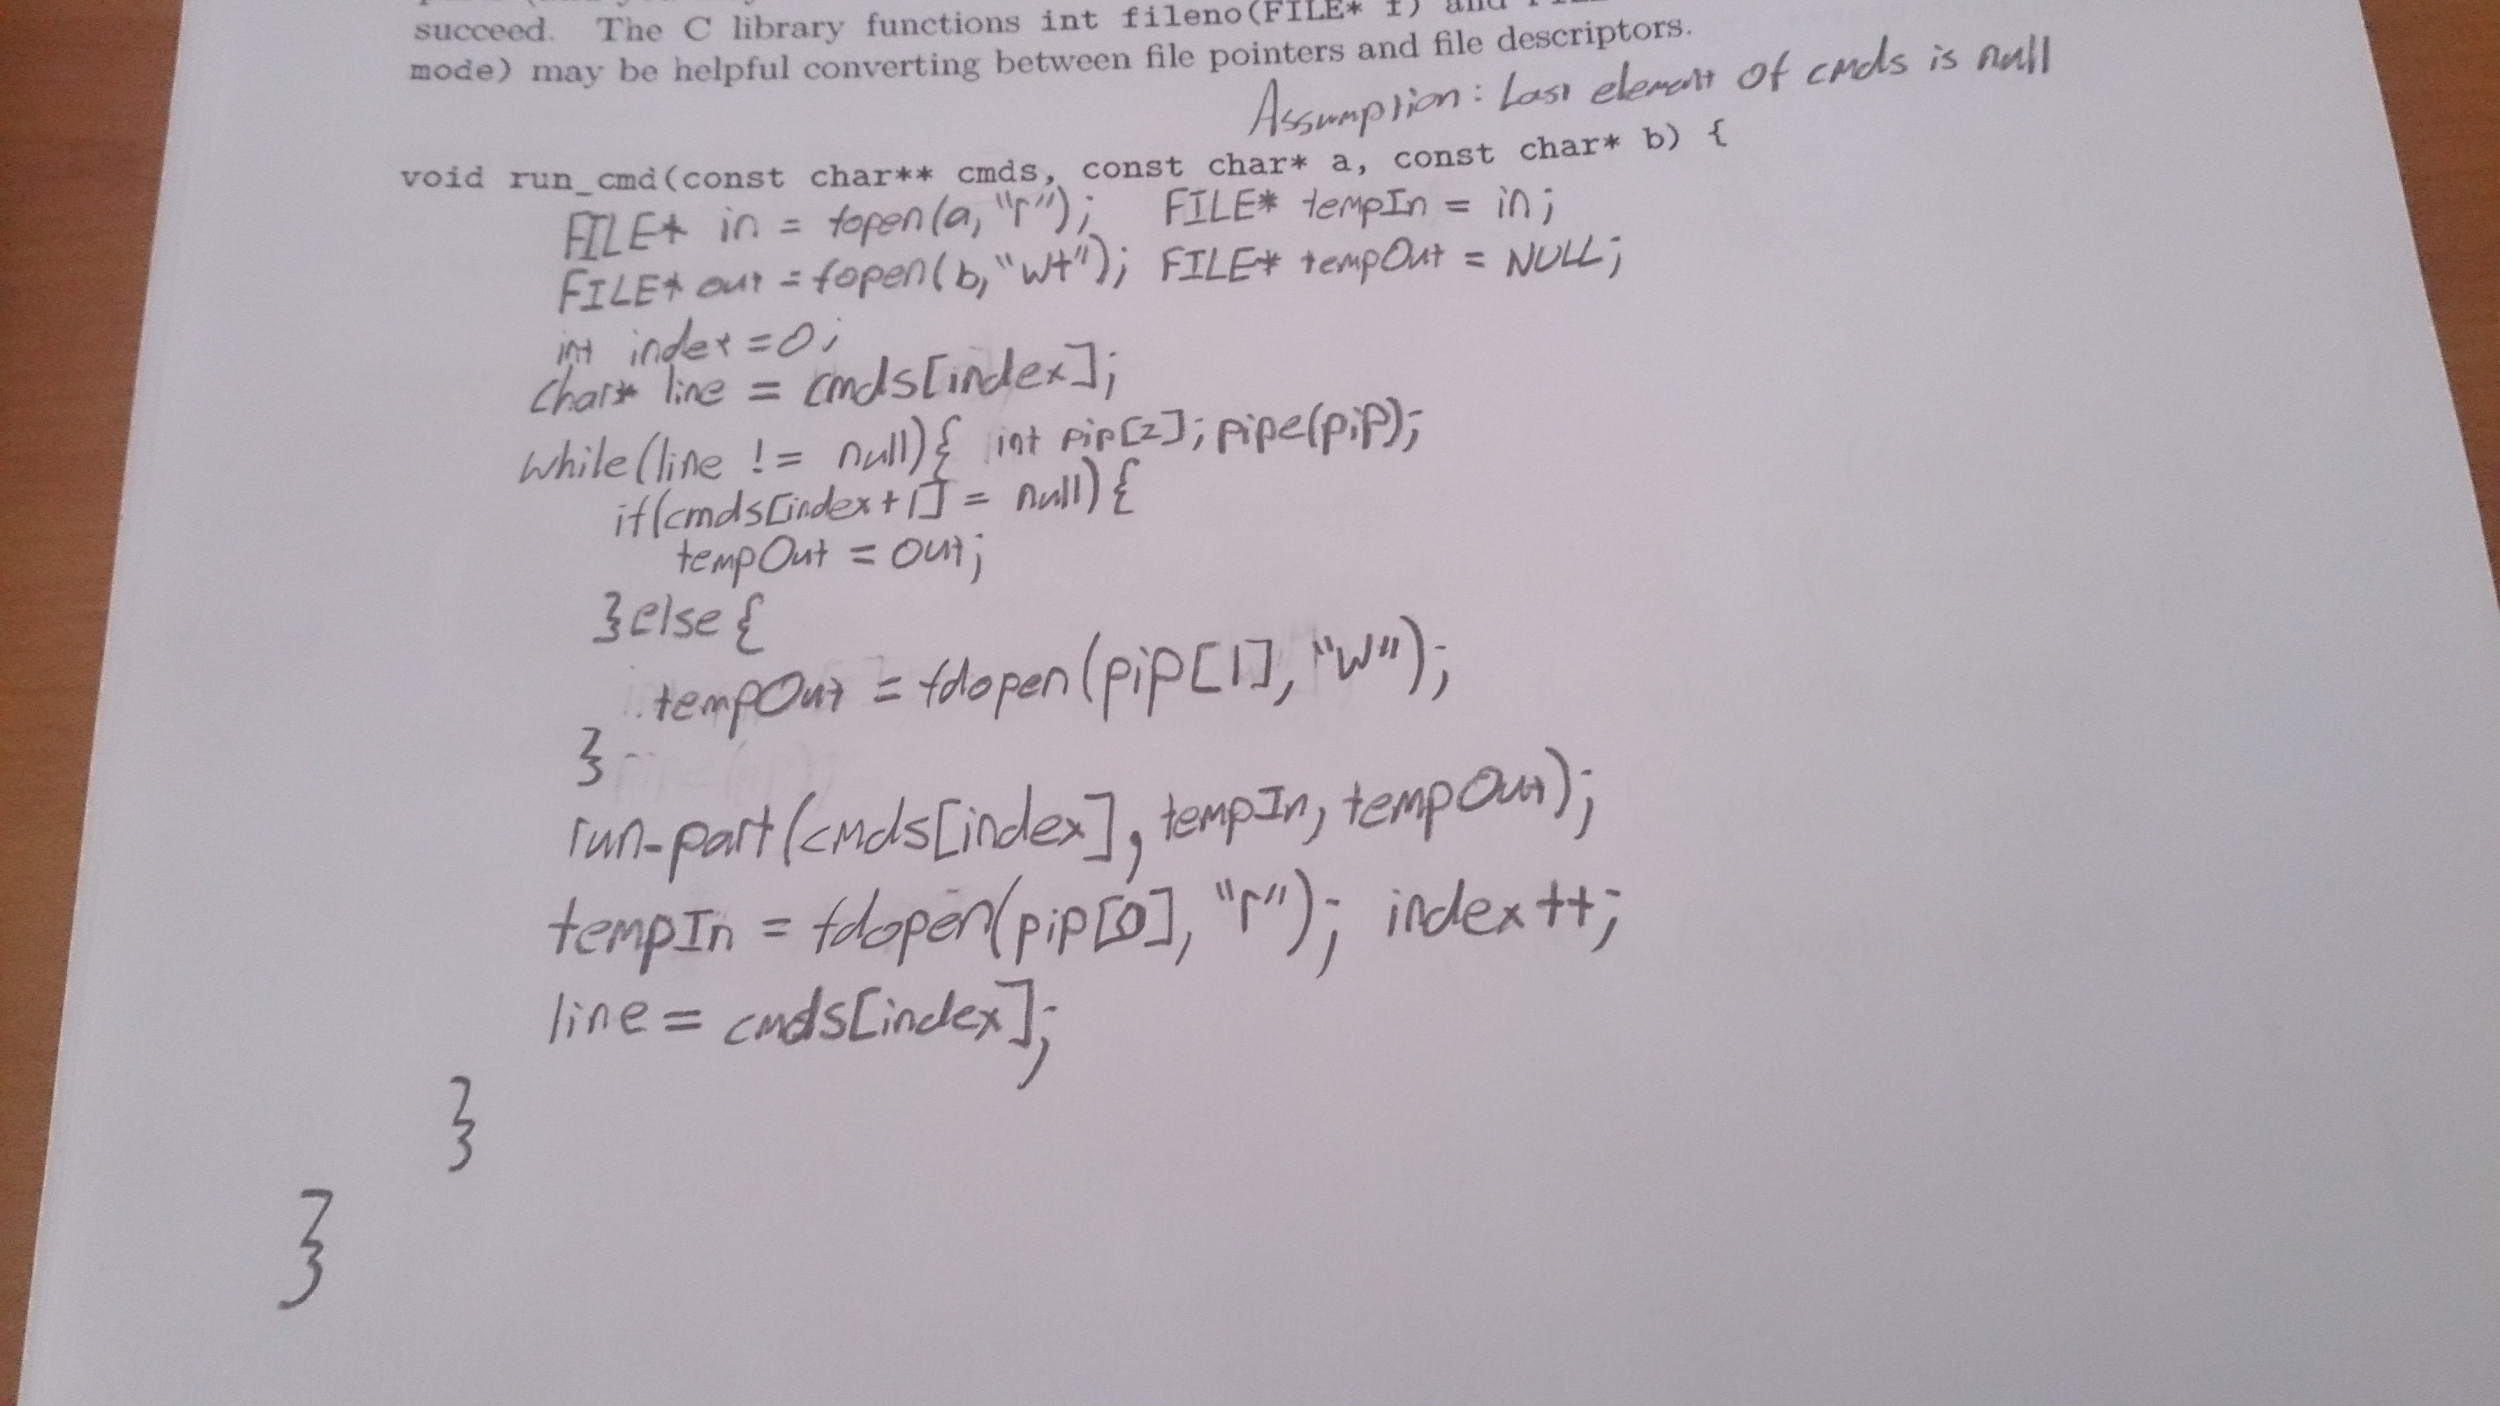 succeed. The C library functions int fileno(FILE* f) and
mode) may be helpful converting between file pointers and file descriptors.
Assumption: Last element of cmds is null
void run_cmd(const char** cmds, const char* a, const char* b) {
FILE* in = fopen(a, "r"); FILE* tempIn = in;
FILE* out = fopen(b, "w+"); FILE* tempOut = NULL;
int index = 0;
char* line = cmds[index];
while(line != null){ int pip[2]; pipe(pip);
if(cmds[index+1] = null){
tempOut = out;
}else{
tempOut = fdopen(pip[1], "w");
}
run-part(cmds[index], tempIn, tempOut);
tempIn = fdopen(pip[0], "r"); index++;
line = cmds[index];
}
}